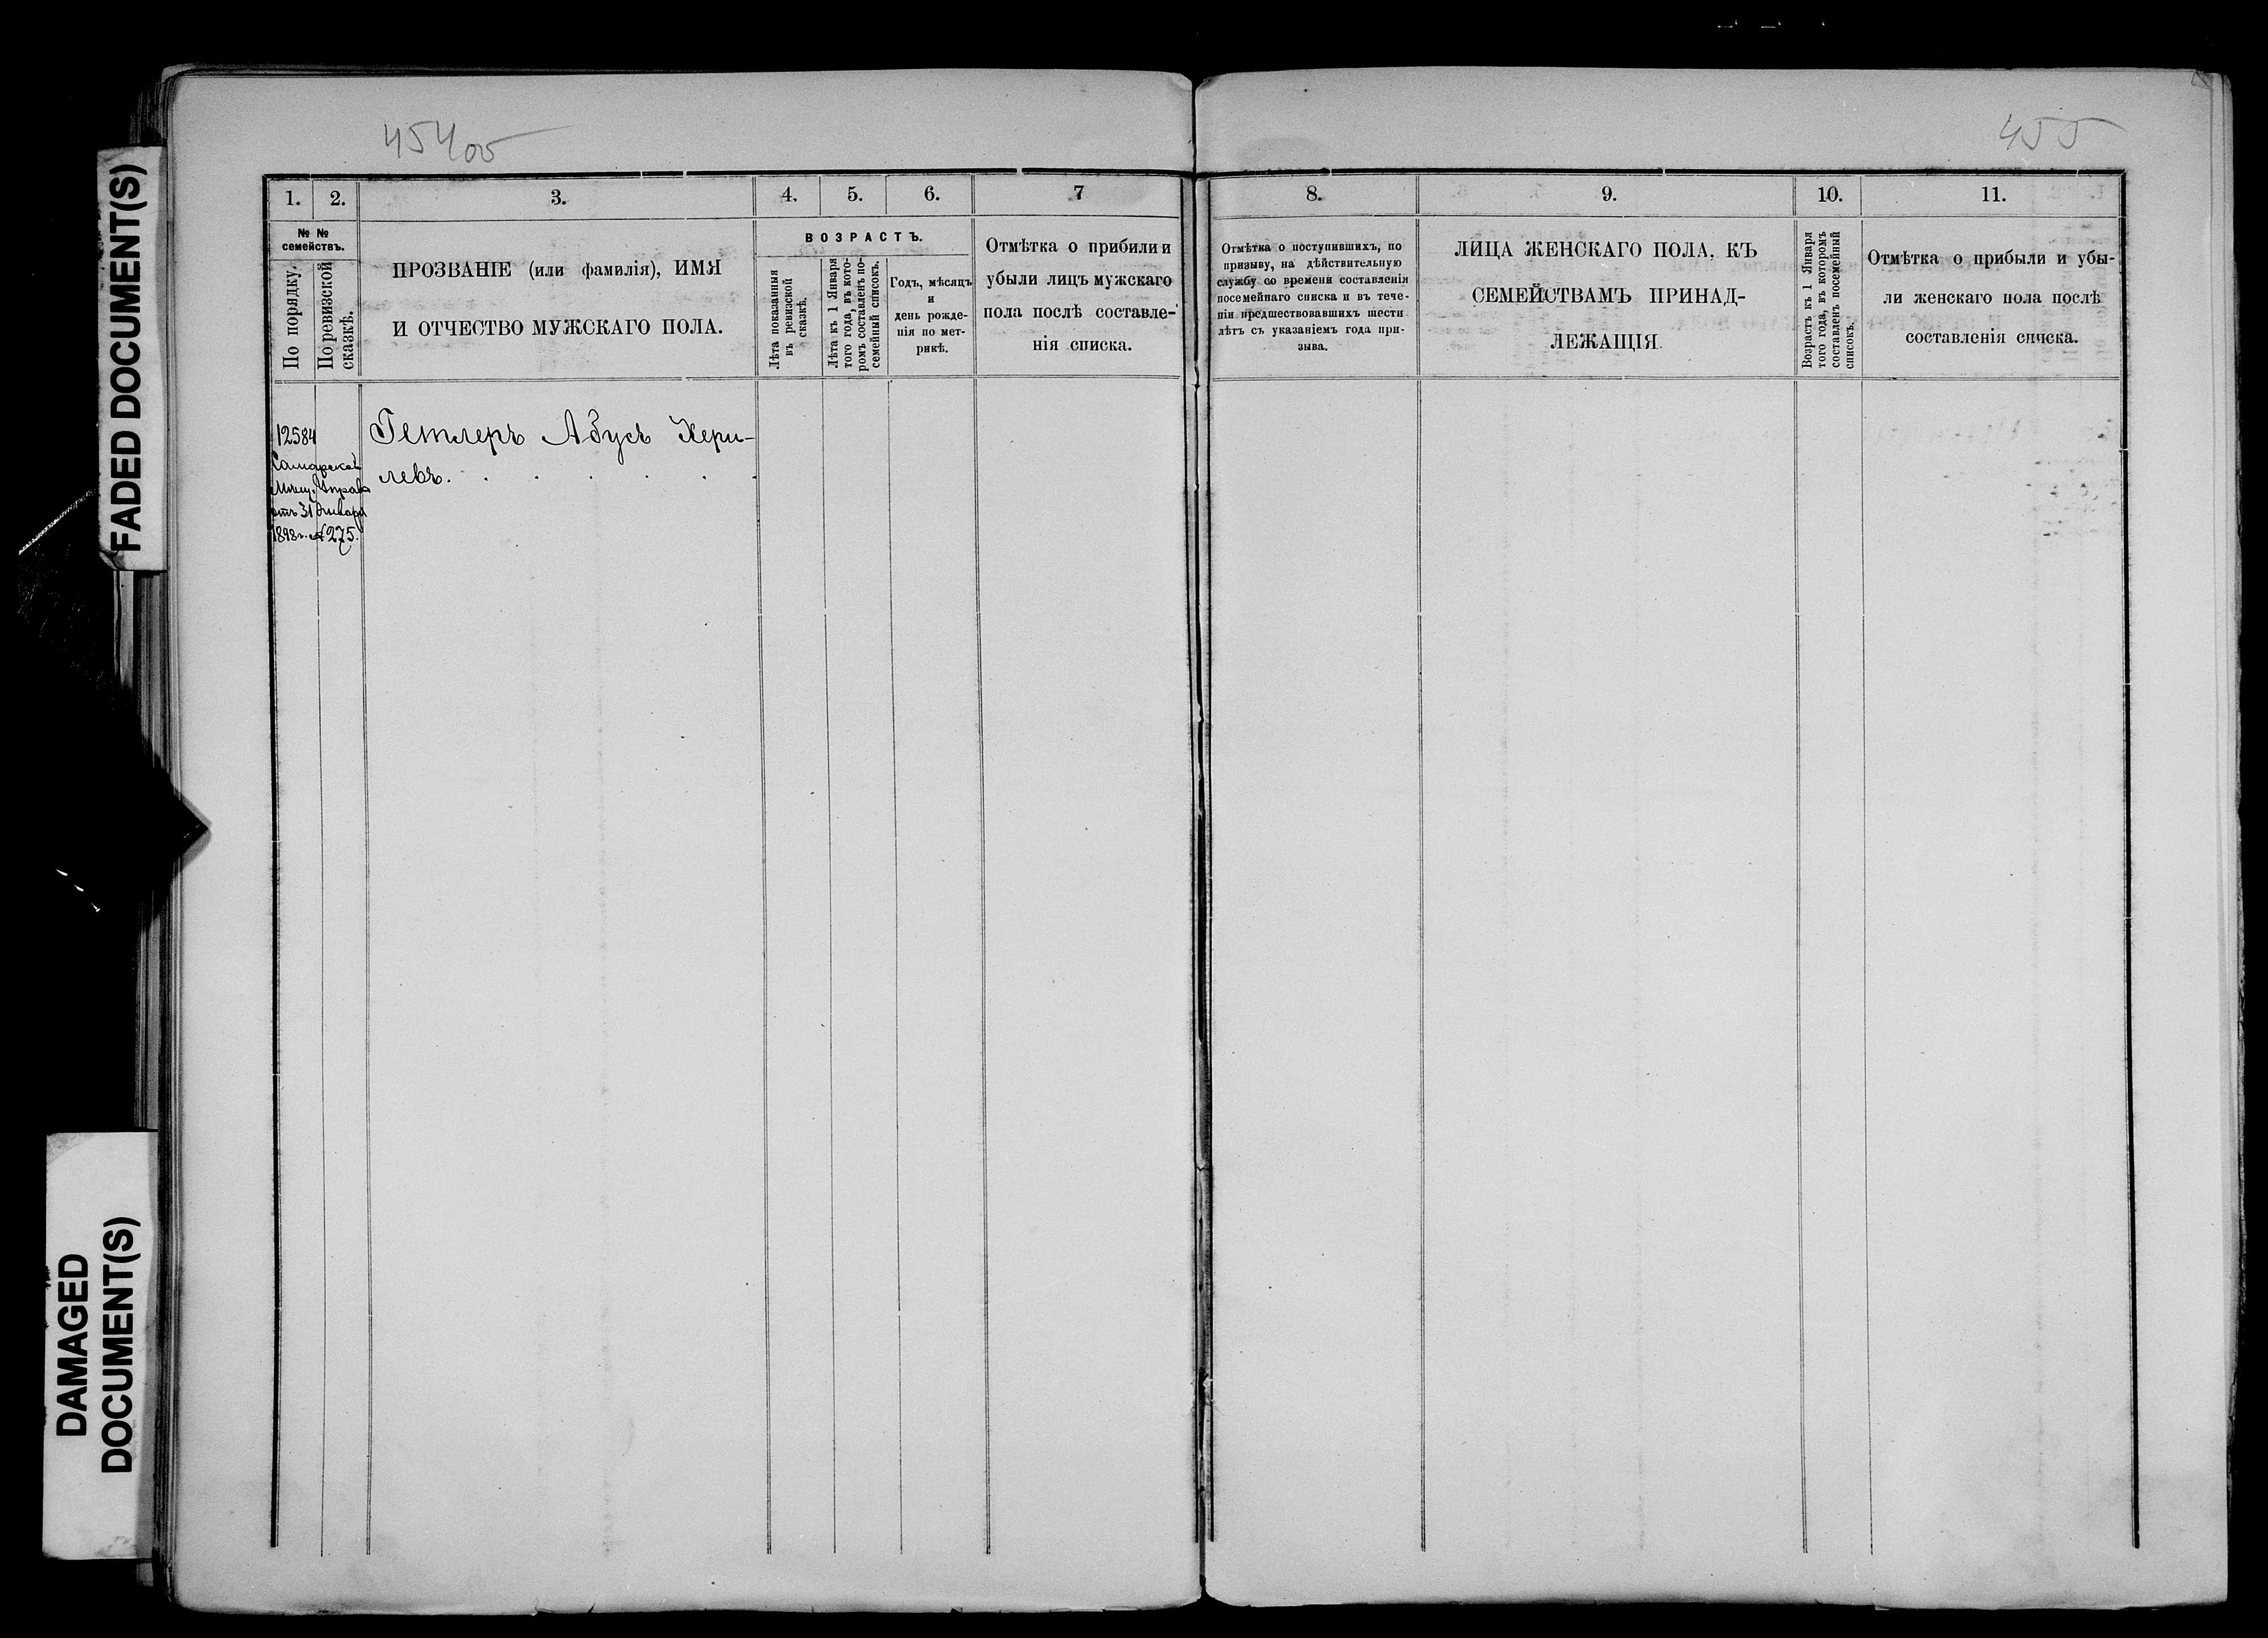 FADED DOCUMENT(S)
DAMAGED
DOCUMENT(S)
454об
1.
2.
3.
4.
5.
6.
7
№ №
семействъ.
По порядку.
По ревизской
сказкѣ.
ПРОЗВАНІЕ (или фамилія), ИМЯ
И ОТЧЕСТВО МУЖСКАГО ПОЛА.
ВОЗРАСТЪ.
Лѣта показанныя
въ ревизской
сказкѣ.
Лѣта къ 1 Января
того года, въ кото-
ромъ составленъ по-
семейный списокъ.
Годъ, мѣсяцъ
и
день рожде-
нія по мет-
рикѣ.
Отмѣтка о прибили и
убыли лицъ мужскаго
пола послѣ составле-
нія списка.
12584
Самарской
Мѣщ. Управ
отъ 31 Января
1898 г. № 275.
Гетлеръ Абусь Хери-
левъ.
455
8.
9.
10.
11.
Отмѣтка о поступившихъ, по
призыву, на дѣйствительную
службу со времени составленія
посемейнаго списка и въ тече-
ніи предшествовавшихъ шести
лѣтъ съ указаніемъ года при-
зыва.
ЛИЦА ЖЕНСКАГО ПОЛА, КЪ
СЕМЕЙСТВАМЪ ПРИНАД-
ЛЕЖАЩІЯ.
Возрастъ къ 1 Января
того года, въ которомъ
составленъ посемейный
списокъ.
Отмѣтка о прибыли и убы-
ли женскаго пола послѣ
составленія списка.